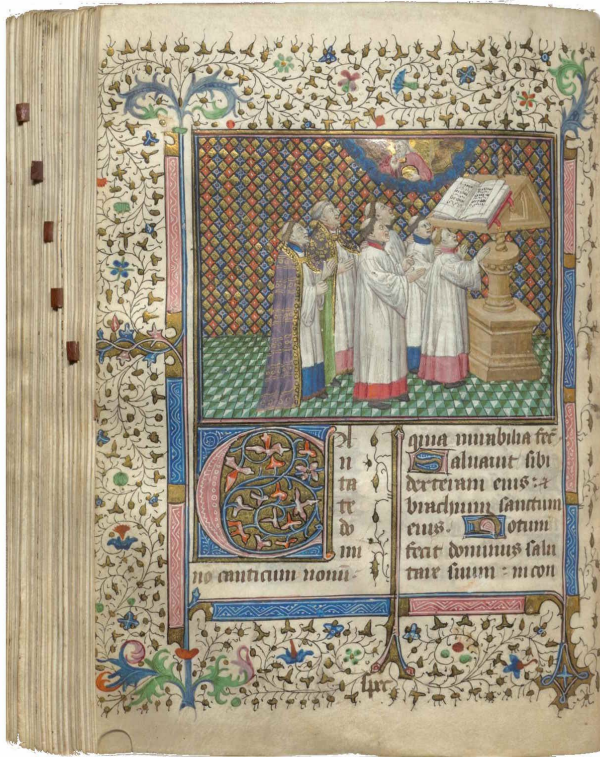 CA
n
ta
te
do
mi
no canticum nouū.
quia mirabilia fec
Saluauit sibi
dexteram eius : &
brachium sanctum
eius. Notum
fecit dominus salu
tare suum : in con